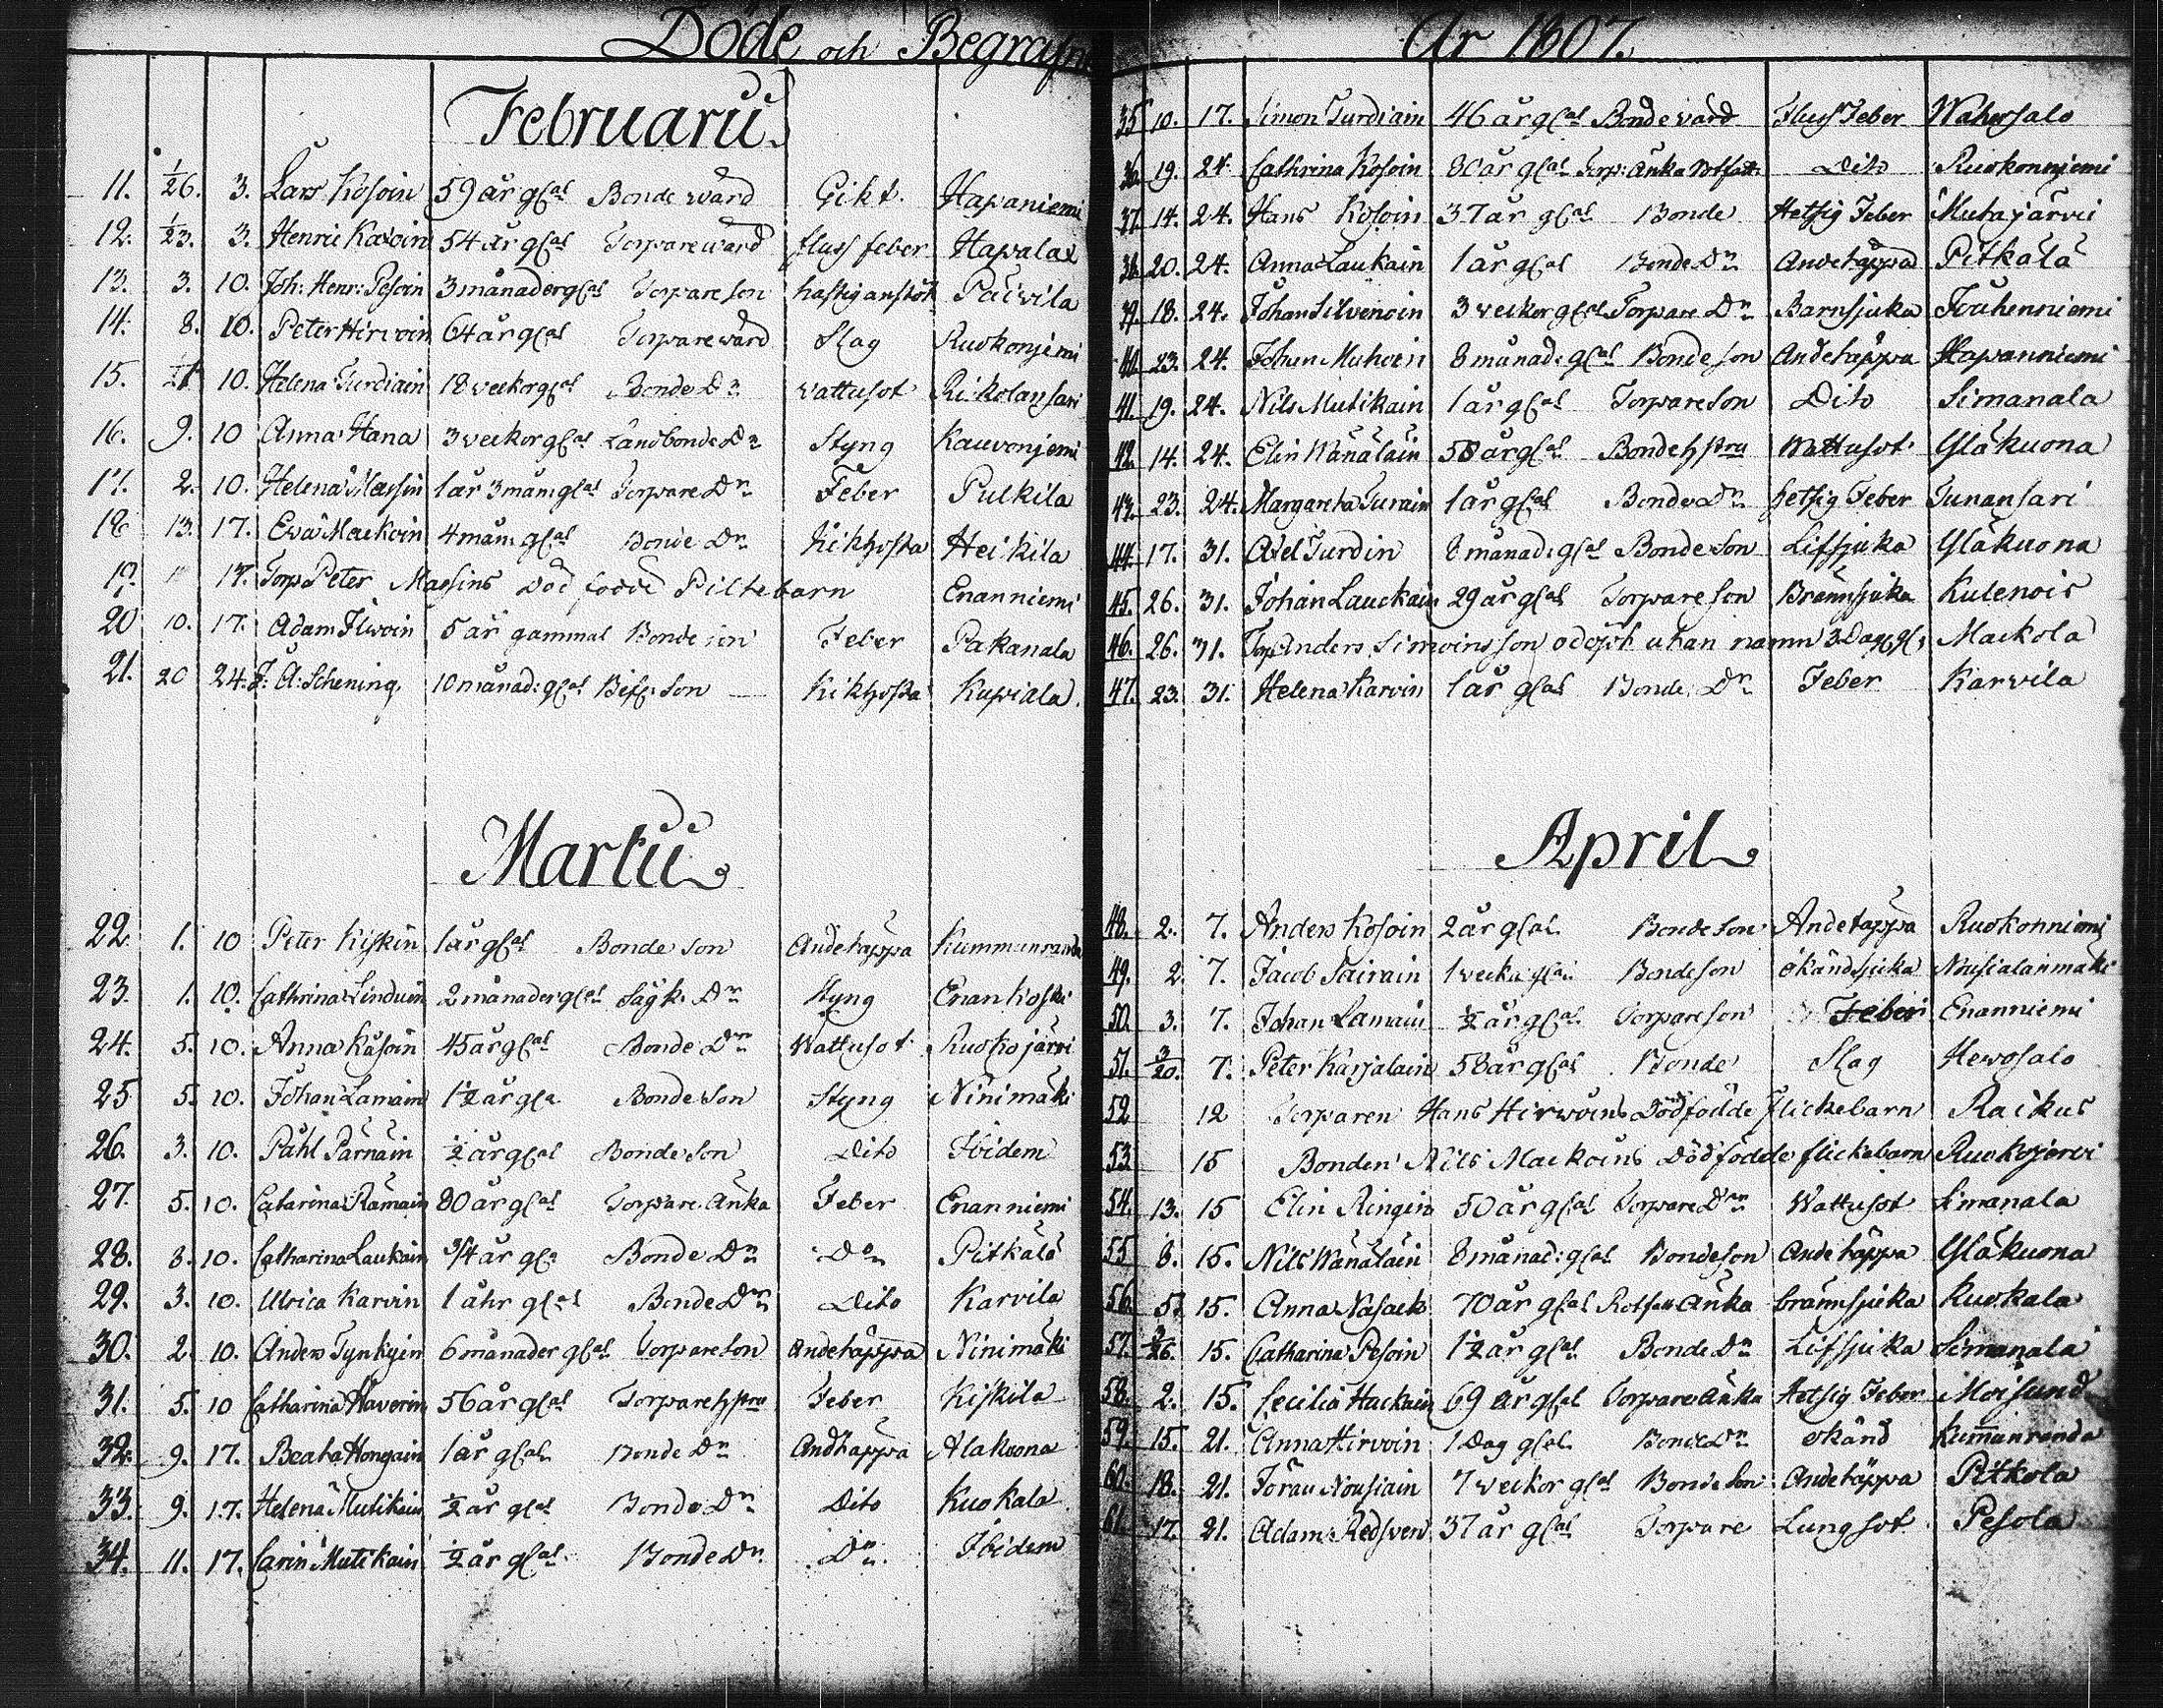 Döde och Begrafn
Februarii
11. 1/26. 3. Lars Kosoin 59 år g(al Bonde ward Gikt. Hapaniemi
12. 1/23. 3. Henric 54 år g(al Torpareward fluss feber Hapalax
13. 3. 10. Joh: Henr: Pesoin 3 månader g(al Torpare son hastig anstöt Päivilä
14. 8. 10. Peter Hirvoin 64 år g(al Torpareward Slag Ruokonjemi
15. 10. Helena Turdiain 18 veckor g(al Bonde Dr wattusot Rikolansari
16. 9. 10 Anna Hana 3 veckor g(al Landbonde Dr Styng Kauvonjemi
17. 2. 10. Helena Massin 1 år 3 mån: g(al Torpare Dr Feber Pulkila
18 13. 17. Eva Mackoin 4 mån: g(al Bonde Dr Kikhosta Heikila
19. 17. Torp Peter Massins Död födde Piltebarn Enanniemi
20 10. 17. Adam Ilwoin 5 år gammal Bonde son Feber Pakanala
21. 20 24. J: A: Schening, 10 månad: g(al Bef: Son Kikhosta Kupiala.
Martii
22. 1. 10 Peter Kiskin 1 år g(al Bonde Son Andetäppa Kummunranda
23. 1. 10. Cathrina Linduin 2 månader g(al Sågk: Dr Styng Enankoski
24. 5. 10. Anna Kåsoin 45 år g(al Bonde Dr Wattusot Ruokojärvi
25 5. 10. Johan Lamain 1 1/2 år g(a Bonde Son Styng Ninimäki
26. 3. 10. Påhl Pärnäin 1/2 år g(al Bonde Son Dito Ibidem
27. 5. 10. Catarina Rämäin 80 år g(al Torpare Änka Feber Enanniemi
28. 8. 10. Catharina Laukain 3/4 år g(a Bonde Dr Do Pitkälä
29. 3. 10. Ulrica Karvin 1 åhr g(al Bonde Dr Dito Karvila
30. 2. 10. Anders Tynkyin 6 månader g(al Torpare Son Andetäppa Ninimäki
31. 5. 10 Catharina Haverin 56 år g(al Torpare hstru Feber Kiskilä
32. 9. 17. Beata Hongain 1 år g(al Bonde Dr Andtäppa Alakuona
33. 9. 17. Helena Mutikain 1/2 år g(al Bonde Dr Dito Kuokala
34. 11. 17. Carin Mutikain 1/2 år g(al Bonde Dr Do Ibidem
År 1807.
35 10. 17. Simon Turdiain 46 år g(al Bondevärd Fluss Feber Wahersalo
36. 19. 24. Cathrina Kosoin 80 år g(al Torp: Änka Dito Ruokonnjemi
37. 14. 24. Hans Kosoin 37 år g(al Bonde Hetsig Feber Mutajärvi
38. 20. 24. Anna Laukain 1 år g(al Bonde Dr Andetäppa Pitkälä
39. 18. 24. Johan Silvenoin 3 veckor g(al Torpare Dr Barnsjuka Jouhenniemi
40. 23. 24. Johan Muhoin 8 månad: g(al Bonde son Andetäppa Hapanniemi
41. 19. 24. Nils Mutikain 1 år g(al Torpare Son Dito Simanala
42. 14. 24. Elin Wänäläin 58 år g(al Bonde hstru Wattusot Yläkuona
43. 23. 24. Margareta Turain 1 år g(al Bonde Dr hetsig Feber Tunansari
44. 17. 31. Axel Turdin 8 månad: g(al Bonde Son Lifsjuka Yläkuona
45. 26. 31. Johan Lauckain 29 år g(al Torpare Son Brännsjuka Kulenois
46. 26. 31. Torp: Anders Simoins son odöpt utan namn 3 Dag: g(: Mackola
47. 23. 31. Helena Karvin 1 år g(al Bonde Dr Feber Karvila
April
48. 2. 7. Anders Kosoin 2 år g(al Bonde Son Andetäppa Ruokonniemi
49. 2 7. Jacob Tairain 1 vecka g(al Bonde son okändsjuka Nousialanmäki
50. 3. 7. Johan Lamain 1/2 år g(al Torpare son Feber Enanniemi
51. 3/20. 7. Peter Karjalain 58 år g(al Bonde Slag Hevosalo
52 12 Torparen Hans Hirwoins Dödfödde flickebarn Raikus
53 15 Bonden Nils Mackoins Dödfödde flickebarn Ruokojärvi
54. 13. 15 Elin Ringin 50 år g(al Torpare Dr Wattusot Simanala
55 8. 15. Nils Wänäläin 8 månad: g(al Bondeson Andetäppa Yläkuona
56. 5. 15. Anna Nasack 70 år g(al Änka brännsjuka Kuokala
57. 3/26. 15. Catharina Pesoin 1 1/2 år g(al Bonde Dr Lifsjuka Simanala
58. 2. 15. Cecilia Hackain 69 år g(al Torpare änka Hetsig Feber Moisund
59. 15. 21. Anna Hirvoin 1 Dag g(al Bonde Dr okänd Kumunranda
60. 18. 21. Jöran Nousiain 7 veckor g(al Bonde Son Andetäppa Pitkola
61. 17. 21. Adam Redsven 37 år g(al Torpare Lungsot Pesola